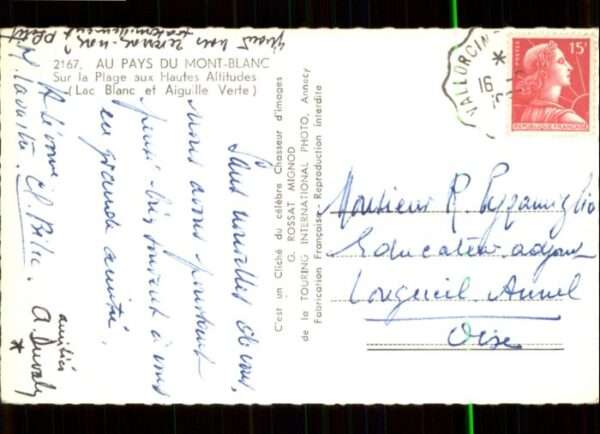 2167. AU PAYS DU MONT-BLANC
Sur la Plage aux Hautes Altitudes
(Lac Blanc et Aiguille Verte)
Sans nouvelles de vous,
nous avons pourtant
pensé très souvent à vous
en grande amitié.
A bientôt
amitiés
C'est un Cliché du célèbre Chasseur d'images
G. ROSSAT MIGNOD
de la TOURING INTERNATIONAL PHOTO, Annecy
Fabrication Française - Reproduction interdite
VALLORCIN
16
15F
REPUBLIQUE FRANÇAISE
Monsieur R.
Educateur adjoint
Longueil Annel
Oise